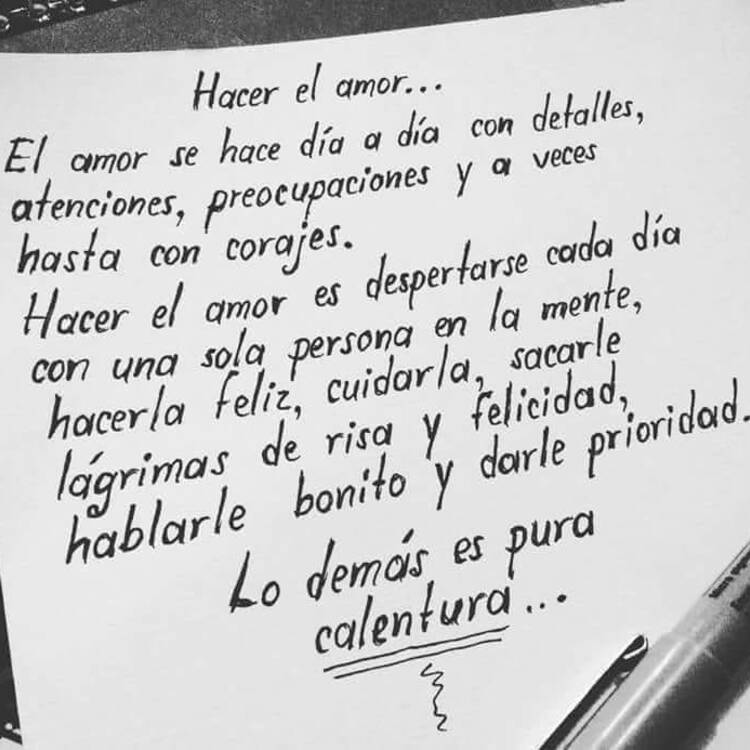 Hacer el amor...
El amor se hace día a día con detalles,
atenciones, preocupaciones y a veces
hasta con corajes.
Hacer el amor es despertarse cada día
con una sola persona en la mente,
hacerla feliz, cuidarla, sacarle
lágrimas de risa y felicidad,
hablarle bonito y darle prioridad.
Lo demás es pura
calentura...